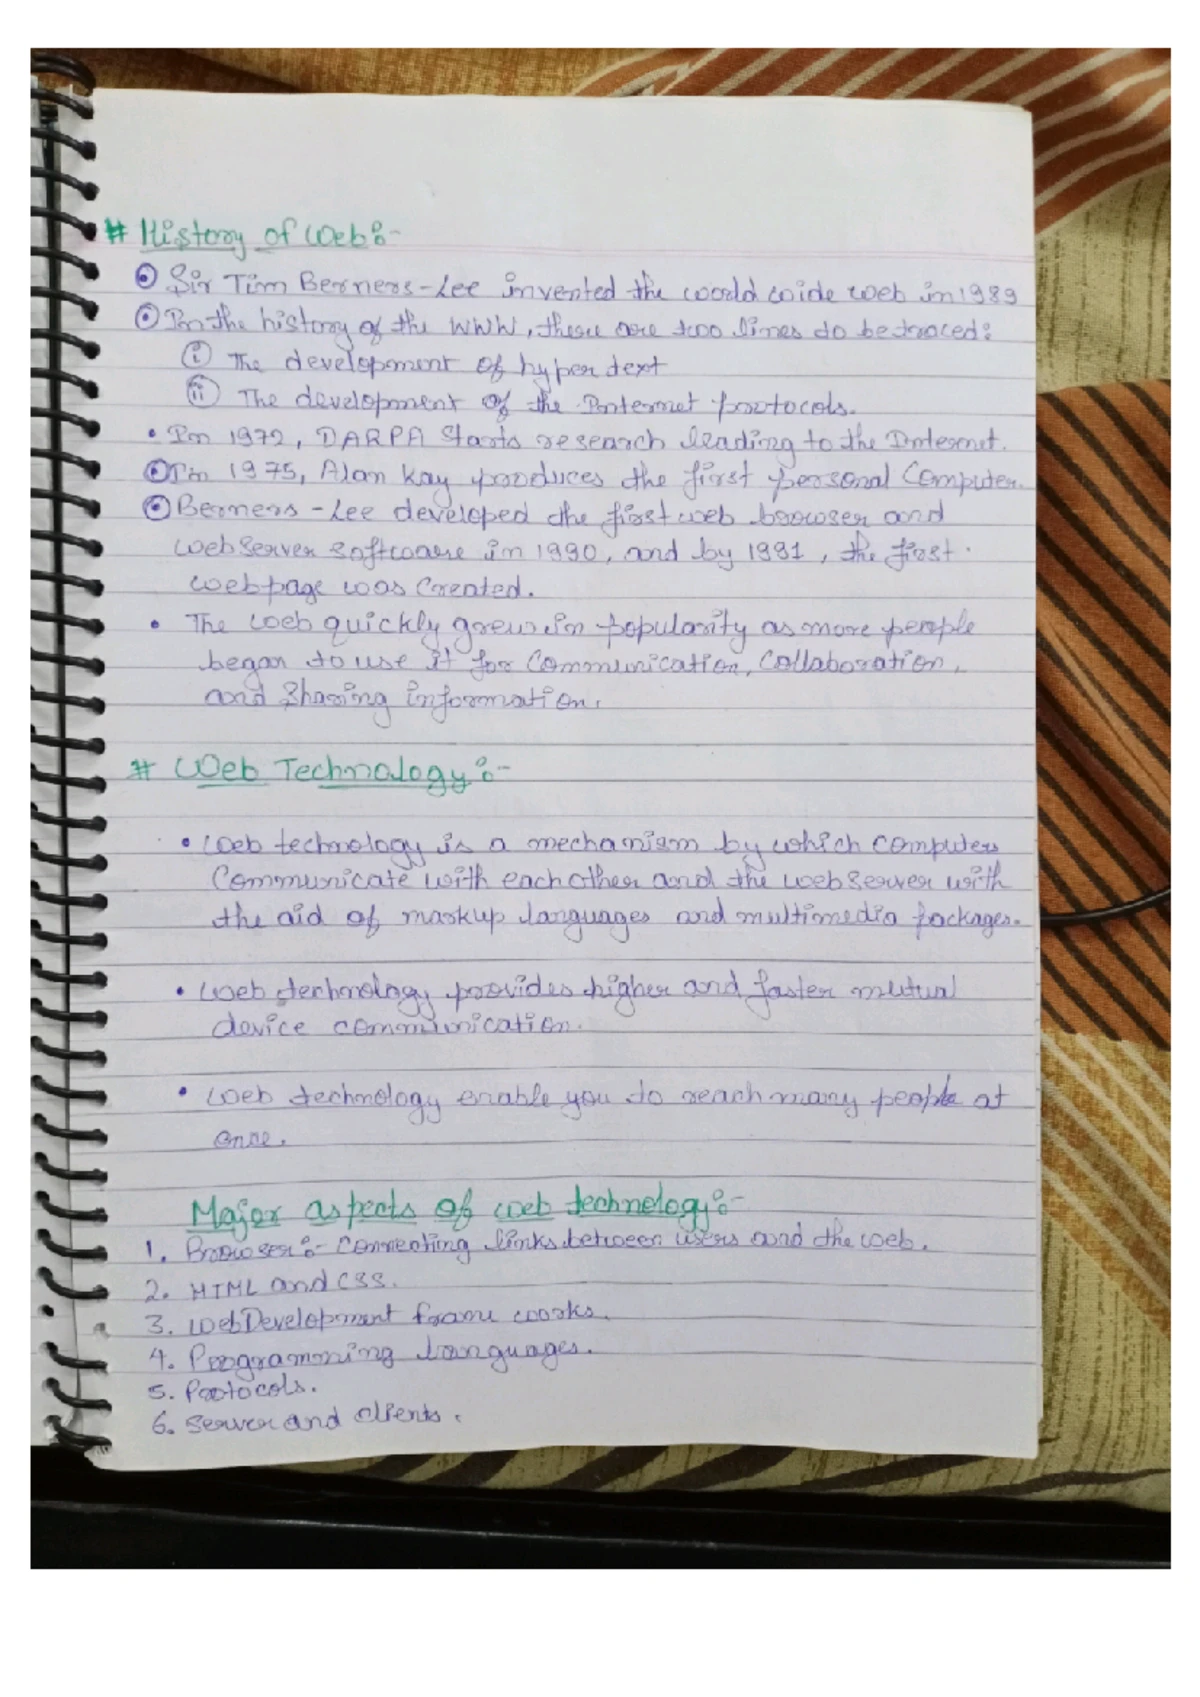 # History of Web:-
⊙ Sir Tim Berners-Lee invented the world wide web in 1989
⊙ In the history of the WWW, these are two lines to be traced:
(i) The development of hyper text
(ii) The development of the Internet protocols.
• In 1972, DARPA starts research leading to the Internet.
⊙ In 1975, Alan Kay produces the first personal Computer.
⊙ Berners-Lee developed the first web browser and
web server software in 1990, and by 1991, the first
webpage was created.
• The web quickly grew in popularity as more people
began to use it for communication, collaboration,
and sharing information.
# Web Technology:-
• Web technology is a mechanism by which computers
communicate with each other and the web server with
the aid of markup languages and multimedia packages.
• Web technology provides higher and faster mutual
device communication.
• Web technology enable you to reach many people at
once.
Major aspects of web technology:-
1. Browser:- Connecting links between users and the web.
2. HTML and CSS.
3. Web Development frame works.
4. Programming languages.
5. Protocols.
6. Server and clients.